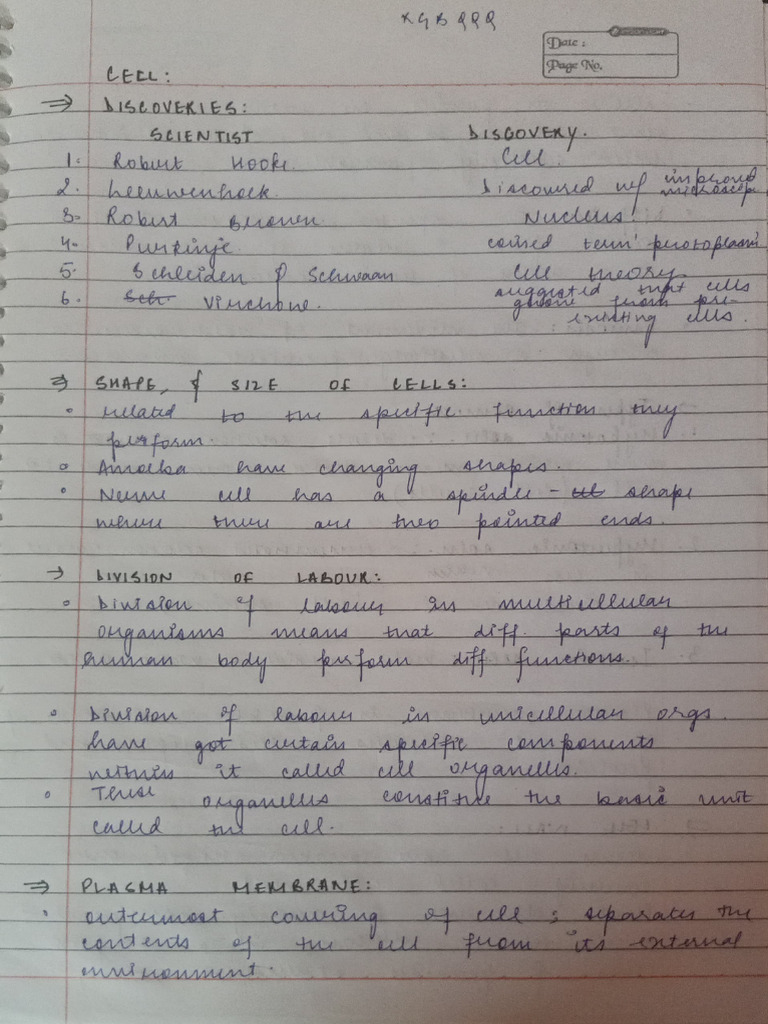 Date :
Page No.
CELL:
⇒ DISCOVERIES:
SCIENTIST DISCOVERY.
1. Robert Hooke. Cell.
2. Leeuwenhoek. Discovered w/ improved microscope
3. Robert Brown Nucleus.
4. Purkinje. coined term 'protoplasm
5. Schleiden & Schwaan Cell theory.
6. Virchow. suggested that cells
grow from pre-
existing cells.
⇒ SHAPE, & SIZE OF CELLS:
• related to the specific function they
perform.
• Amoeba have changing shapes.
• Nerve cell has a spindle - shape
where there are two pointed ends.
→ DIVISION OF LABOUR:
• Division of labour in multicellular
organisms means that diff. parts of the
human body perform diff functions.
• Division of labour in unicellular orgs.
have got certain specific components
within it called cell organelles.
• These organelles constitue the basic unit
called the cell.
⇒ PLASMA MEMBRANE:
• outermost covering of cell ; separates the
contents of the cell from its external
environment.